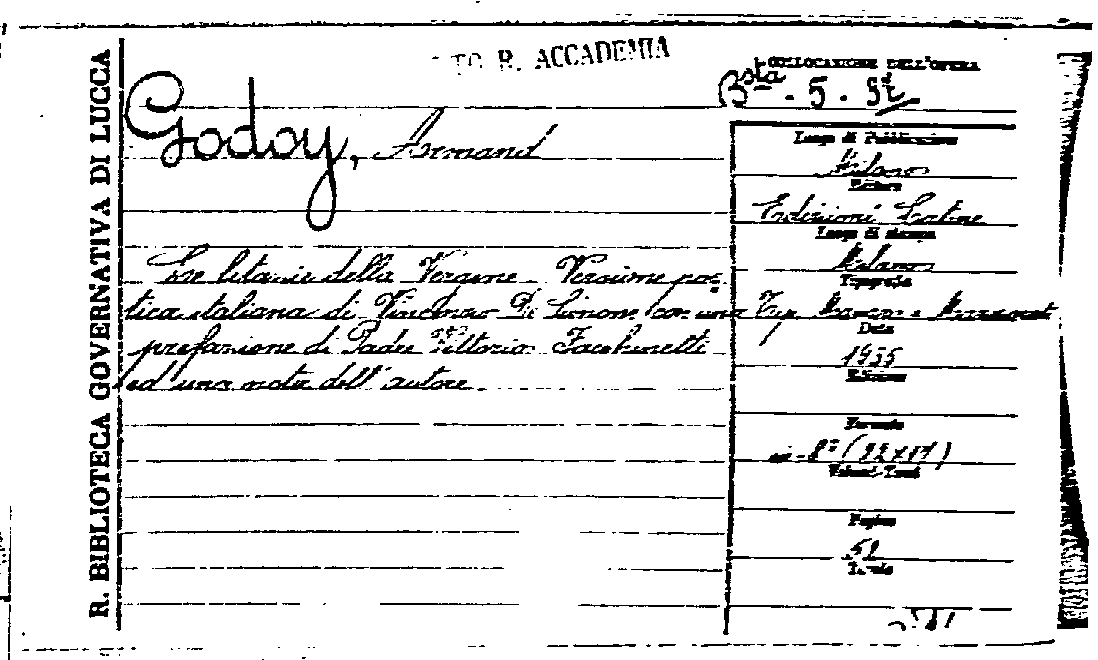 R. BIBLIOTECA GOVERNATIVA DI LUCCA
R. ACCADEMIA
COLLOCAZIONE DELL'OPERA
Bsta - 5 - St
Godoy, Armand
Luogo di Pubblicazione
Milano
Editore
Edizioni Latine
Luogo di stampa
Milano
Tipografia
Tip.
Data
1935
Edizione
Formato
in-8° (22x17)
Volumi-Tomi
Pagine
52
Tavole
Le litanie della Vergine - Versione poe=
tica italiana di Vincenzo Di Simone con una
prefazione di Padre Vittorio Facchinetti
ed una nota dell'autore.